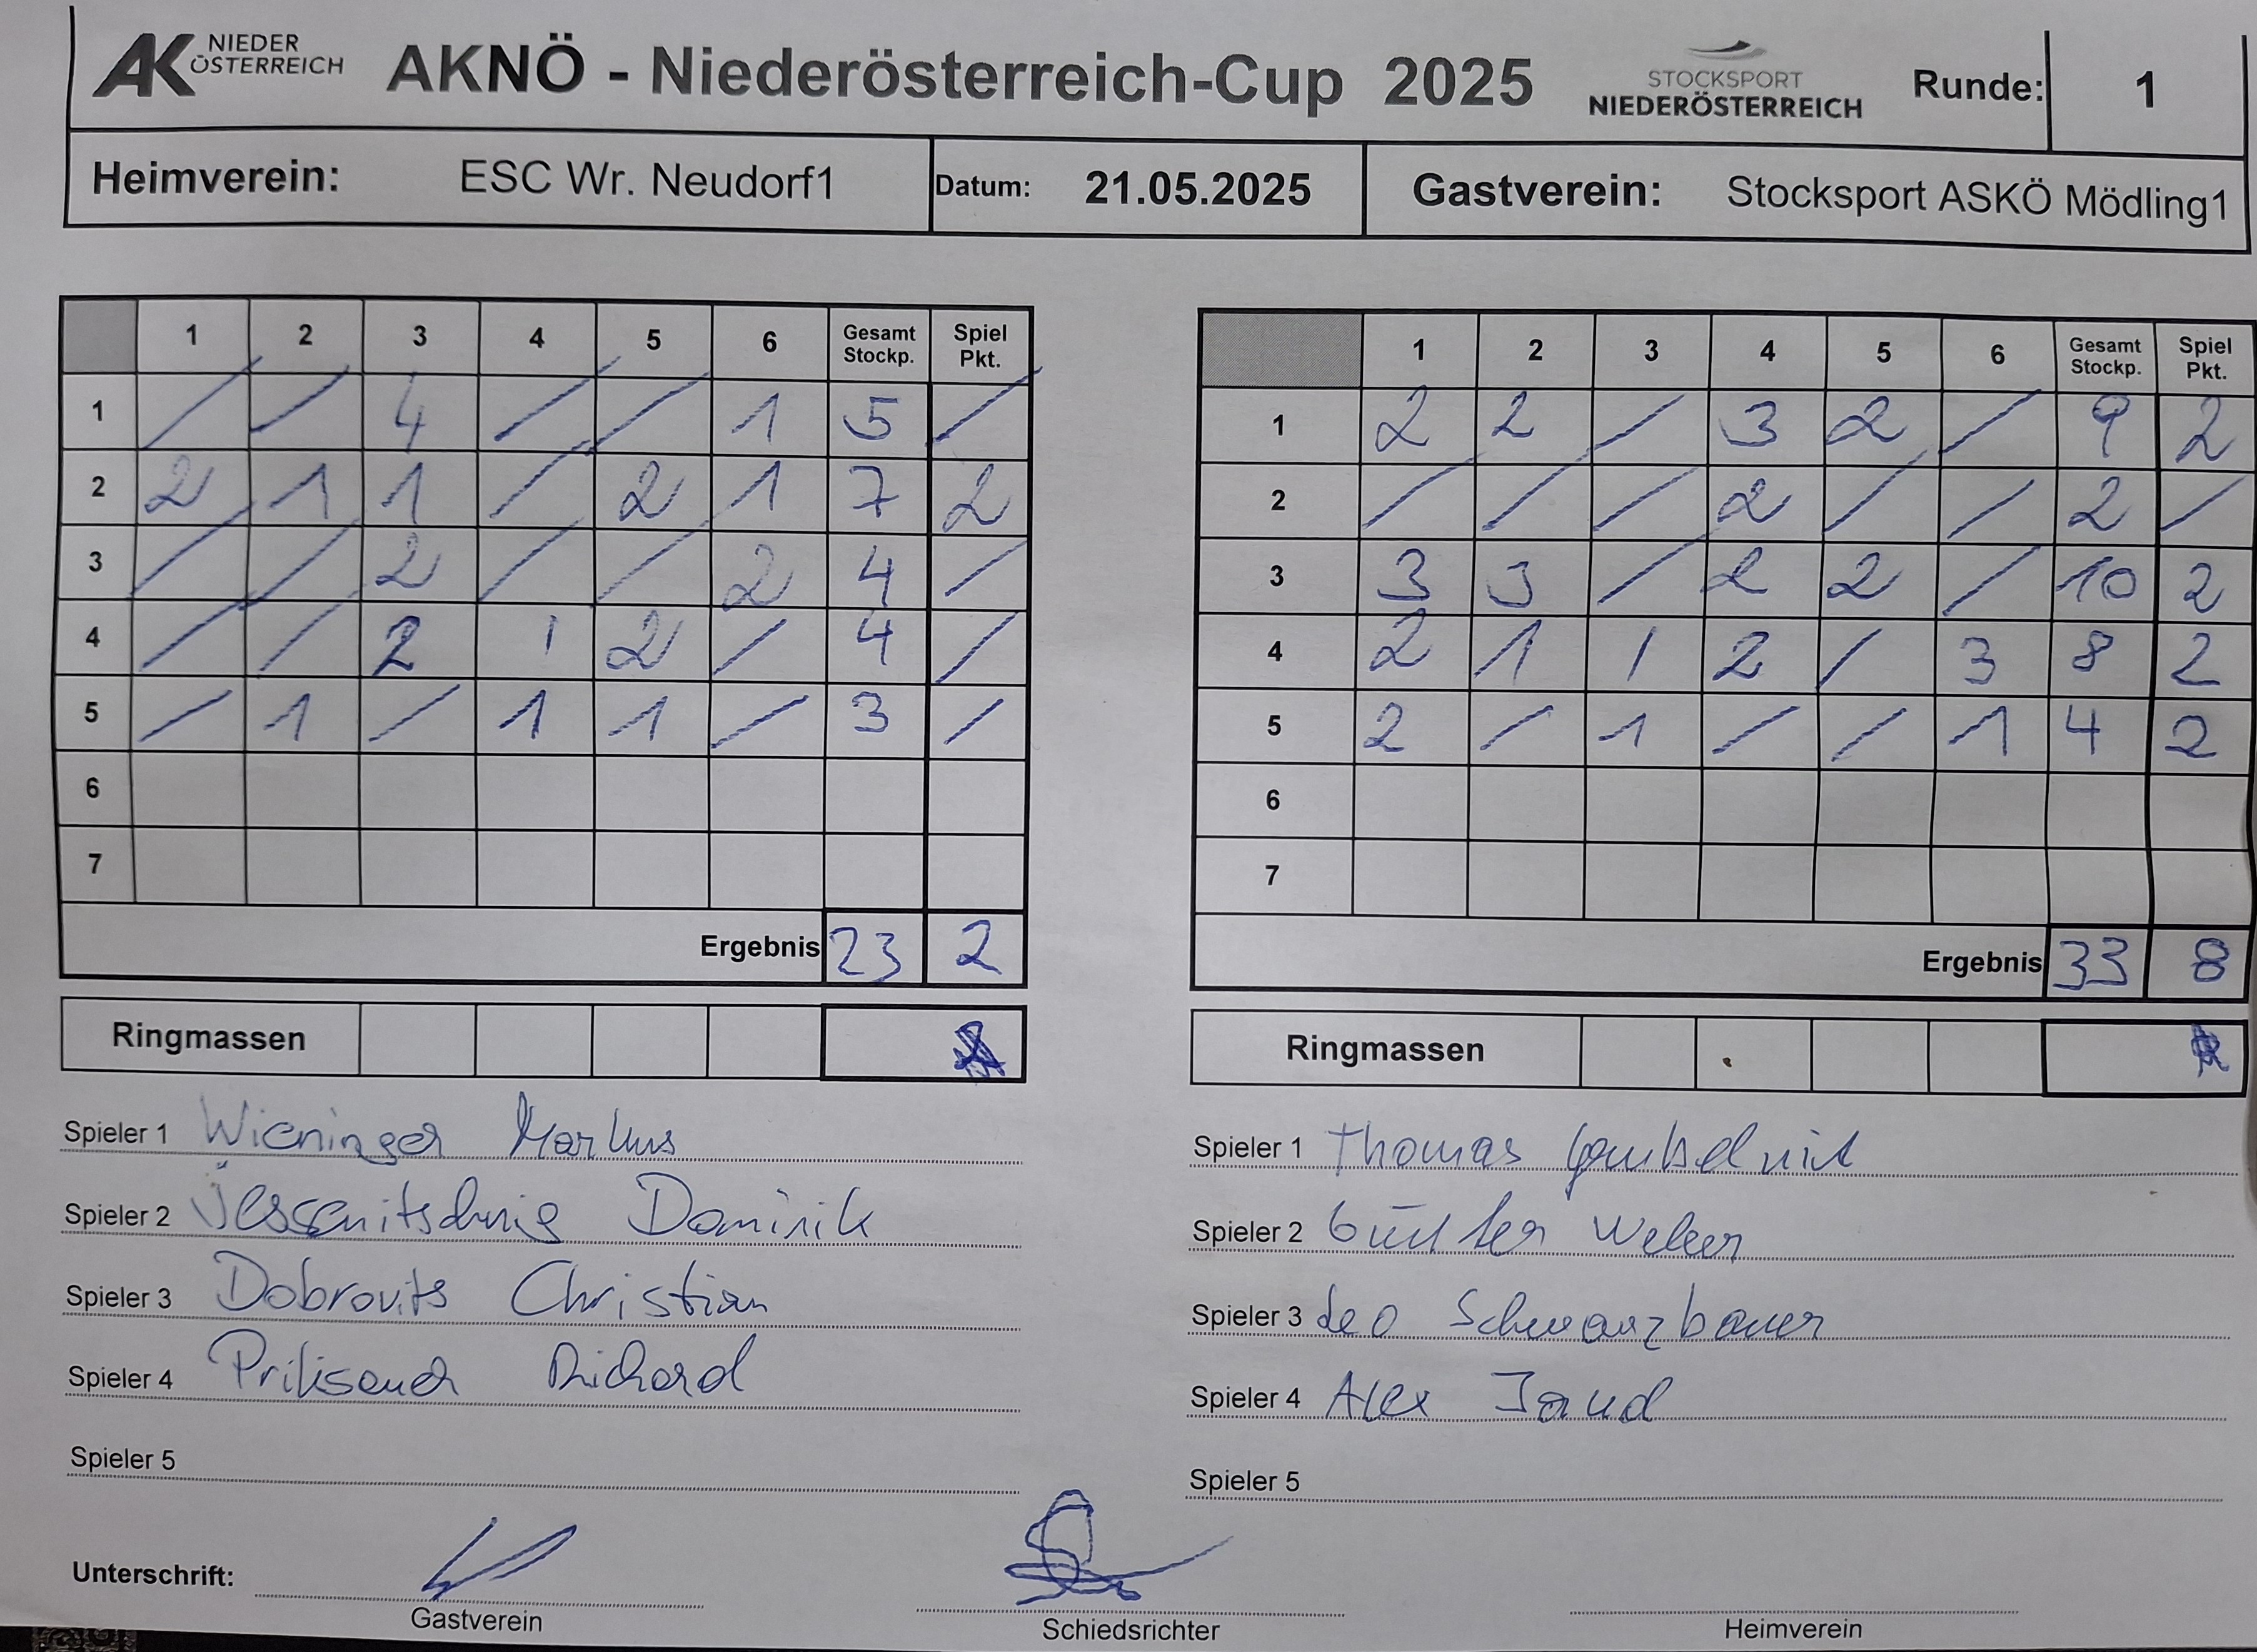 AK NIEDER ÖSTERREICH AKNÖ - Niederösterreich-Cup 2025 STOCKSPORT NIEDERÖSTERREICH Runde: 1
Heimverein: ESC Wr. Neudorf1 Datum: 21.05.2025 Gastverein: Stocksport ASKÖ Mödling1
1 2 3 4 5 6 Gesamt Stockp. Spiel Pkt.
1 / / 4 / / 1 5 /
2 2 1 1 / 2 1 7 2
3 / / 2 / / 2 4 /
4 / / 2 1 2 / 4 /
5 / 1 / 1 1 / 3 /
6
7
Ergebnis 23 2
Ringmassen
Spieler 1 Wieninger Markus
Spieler 2 Dominik
Spieler 3 Dobrovits Christian
Spieler 4 Richard
Spieler 5
1 2 3 4 5 6 Gesamt Stockp. Spiel Pkt.
1 2 2 / 3 2 / 9 2
2 / / / 2 / / 2 /
3 3 3 / 2 2 / 10 2
4 2 1 / 2 / 3 8 2
5 2 / 1 / / 1 4 2
6
7
Ergebnis 33 8
Ringmassen
Spieler 1 Thomas
Spieler 2 Günter Weber
Spieler 3 Leo Schwarzbauer
Spieler 4 Alex
Spieler 5
Unterschrift:
Gastverein
Schiedsrichter
Heimverein